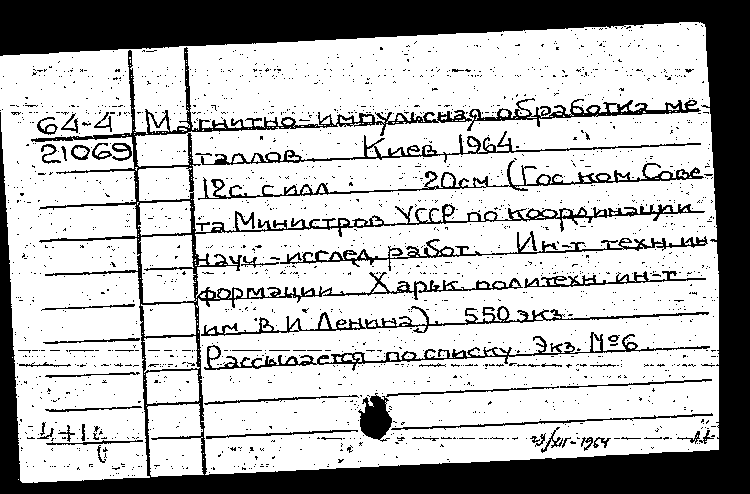 64-4 Магнитно-импульсная обработка ме-
21069 таллов. Киев, 1964.
12с. с илл. 20см (Гос. ком. Сове-
та Министров УССР по координации
науч-исслед. работ. Ин-т техн. ин-
формации. Харьк. политехн. ин-т
им. В. И. Ленина). 550 экз.
Рассылается по списку. Экз. №6
29/XII-1964